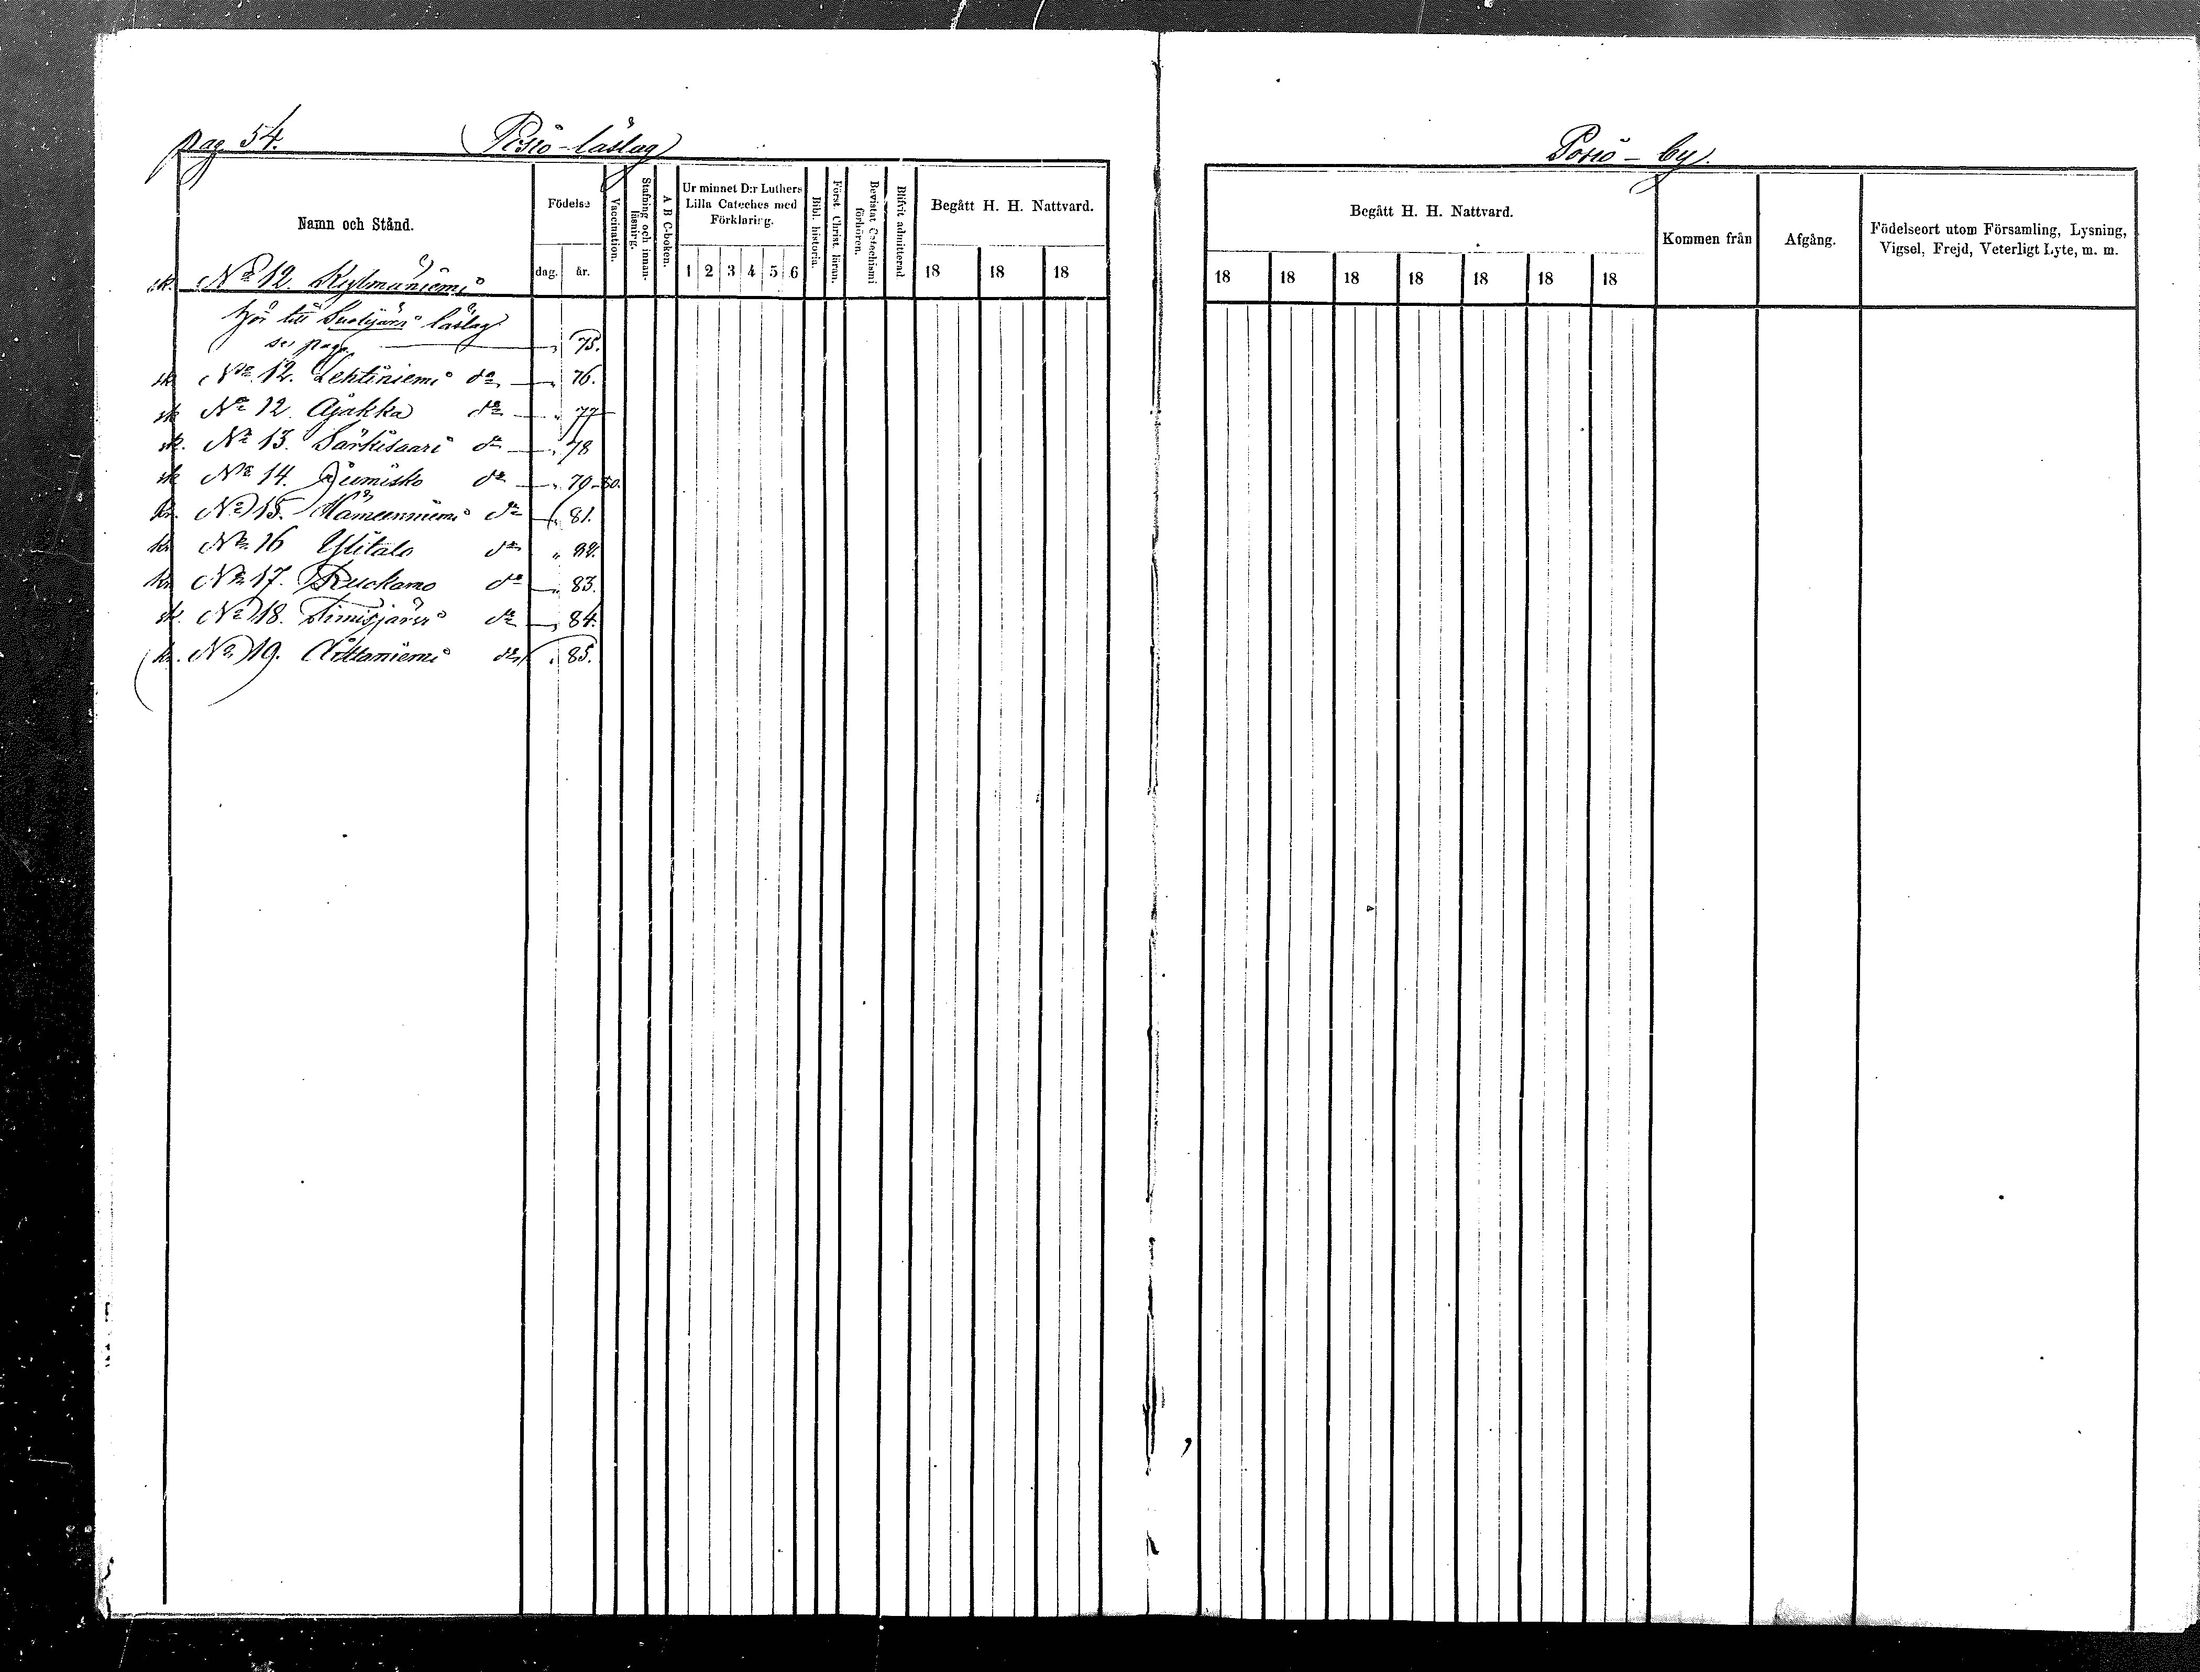 pag 54. Posio-läslag
Namn och Stånd.
Födelse
dag. år.
Vaccination.
Stafning och innanläsning.
A B C-boken.
Ur minnet D:r Luthers
Lilla Cateches med
Förklaring.
1 2 3 4 5 6
Bibl. historia.
Först. Christ. läran.
Bevistat Catechismi förhören.
Blifvit admitterad.
Begått H. H. Nattvard.
18 18 18
sk. No 12. Kylmäniemi
hör till Suolijärvi läslag
se pag. " 75.
sk No 12. Lehtiniemi do " 76.
sk No 12. Ajakka do " 77
sk. No 13. Särkisaari do " 78
sk No 14. Jumisko do " 79-80.
kr. No 15. Hämeenniemi do " 81.
kr No 16 Ylitalo do " 82.
kr No 17. Ruokamo do " 83.
sk. No 18. Timisjärvi do " 84.
kr. No 19. Aittaniemi do " 85.
Posio-by.
Begått H. H. Nattvard.
18 18 18 18 18 18 18
Kommen från
Afgång.
Födelseort utom Församling, Lysning,
Vigsel, Frejd, Veterligt Lyte, m. m.